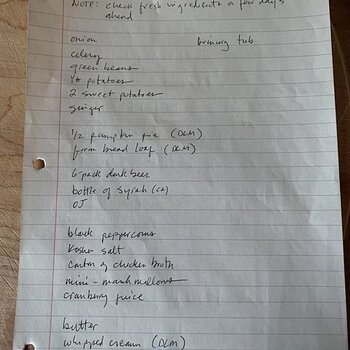 NOTE: check fresh ingredients a few days
ahead
onion brining tub
celery
green beans
YG potatoes
2 sweet potatoes
ginger
1/2 pumpkin pie (DLM)
farm bread loaf (DLM)
6-pack dark beer
bottle of syrah (CA)
OJ
black peppercorns
kosher salt
carton of chicken broth
mini-marshmellows
cranberry juice
butter
whipped cream (DLM)